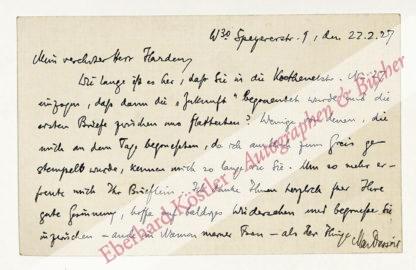 W30 Speyererstr. 9, den 22.2.27
Mein verehrter Herr Harden,
Wie lange ist es her, daß Sie in die Köthenerstr.
einzogen, daß dann die „Zukunft“ begonnen wurde und die
ersten Briefe zwischen uns flatterten? Wenige von denen, die
mich an dem Tage begrüssten, da ich amtlich zum Greis ge-
stempelt wurde, kennen mich so lange wie Sie. Um so mehr er-
freute mich Ihr Brieflein. Ich danke Ihnen herzlich für Ihre
gute Gesinnung, hoffe auf baldiges Wiedersehen und begrüsse Sie
inzwischen – auch im Namen meiner Frau – als Ihr
Max Dessoir
Eberhard Köstler Autographen & Bücher